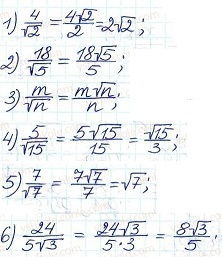 1) 4/√2 = 4√2/2 = 2√2;
2) 18/√5 = 18√5/5;
3) m/√n = m√n/n;
4) 5/√15 = 5√15/15 = √15/3;
5) 7/√7 = 7√7/7 = √7;
6) 24/5√3 = 24√3/5·3 = 8√3/5.